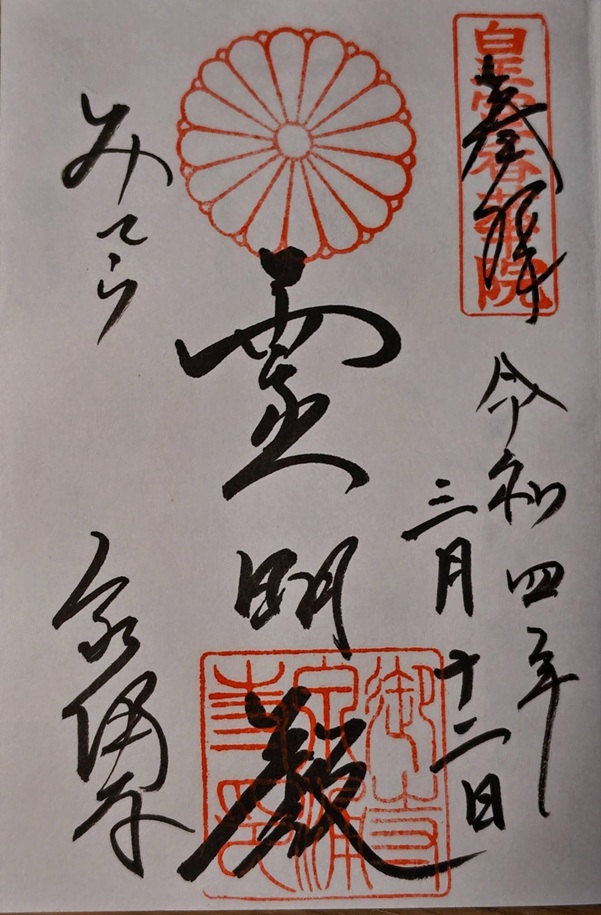 皇室香華院
奉拝
令和四年
三月十二日
霊明殿
みてら
泉涌寺
御寺
泉涌
寺印